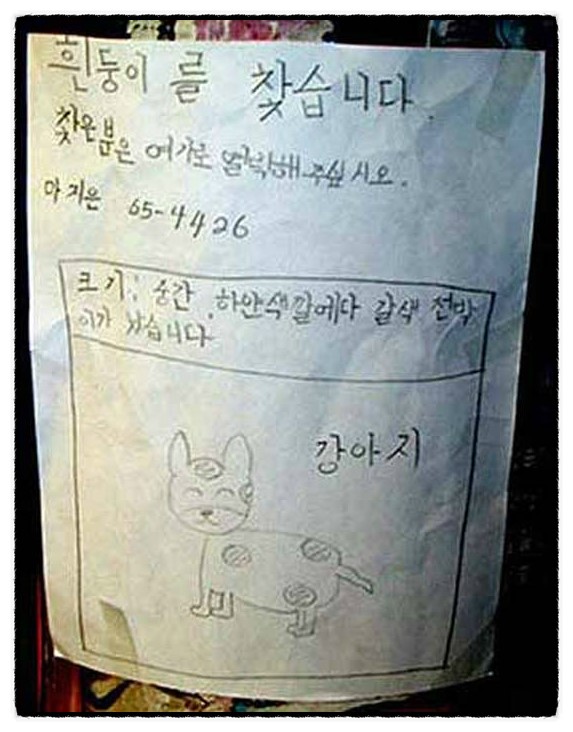 흰둥이 를 찾습니다.
찾은분은 여기로 연락해 주십시오.
마지은 65-4426
크기: 중간 .하얀색깔에다 갈색 점박
이가 났습니다
강아지